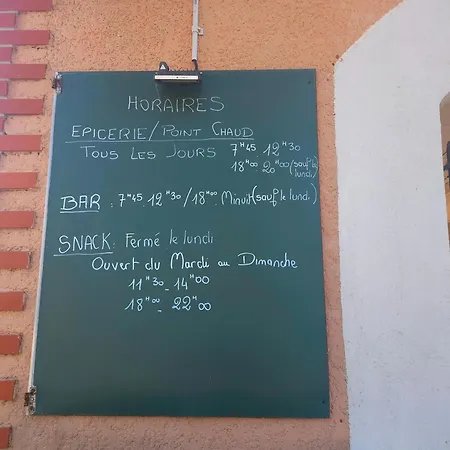 HORAIRES
EPICERIE/POINT CHAUD
TOUS LES JOURS 7H45 12H30
18H00 20H00 (sauf le lundi)
BAR : 7H45 12H30 / 18H00 Minuit (sauf le lundi)
SNACK: Fermé le lundi
Ouvert du Mardi au Dimanche
11H30 - 14H00
18H00 - 22H00